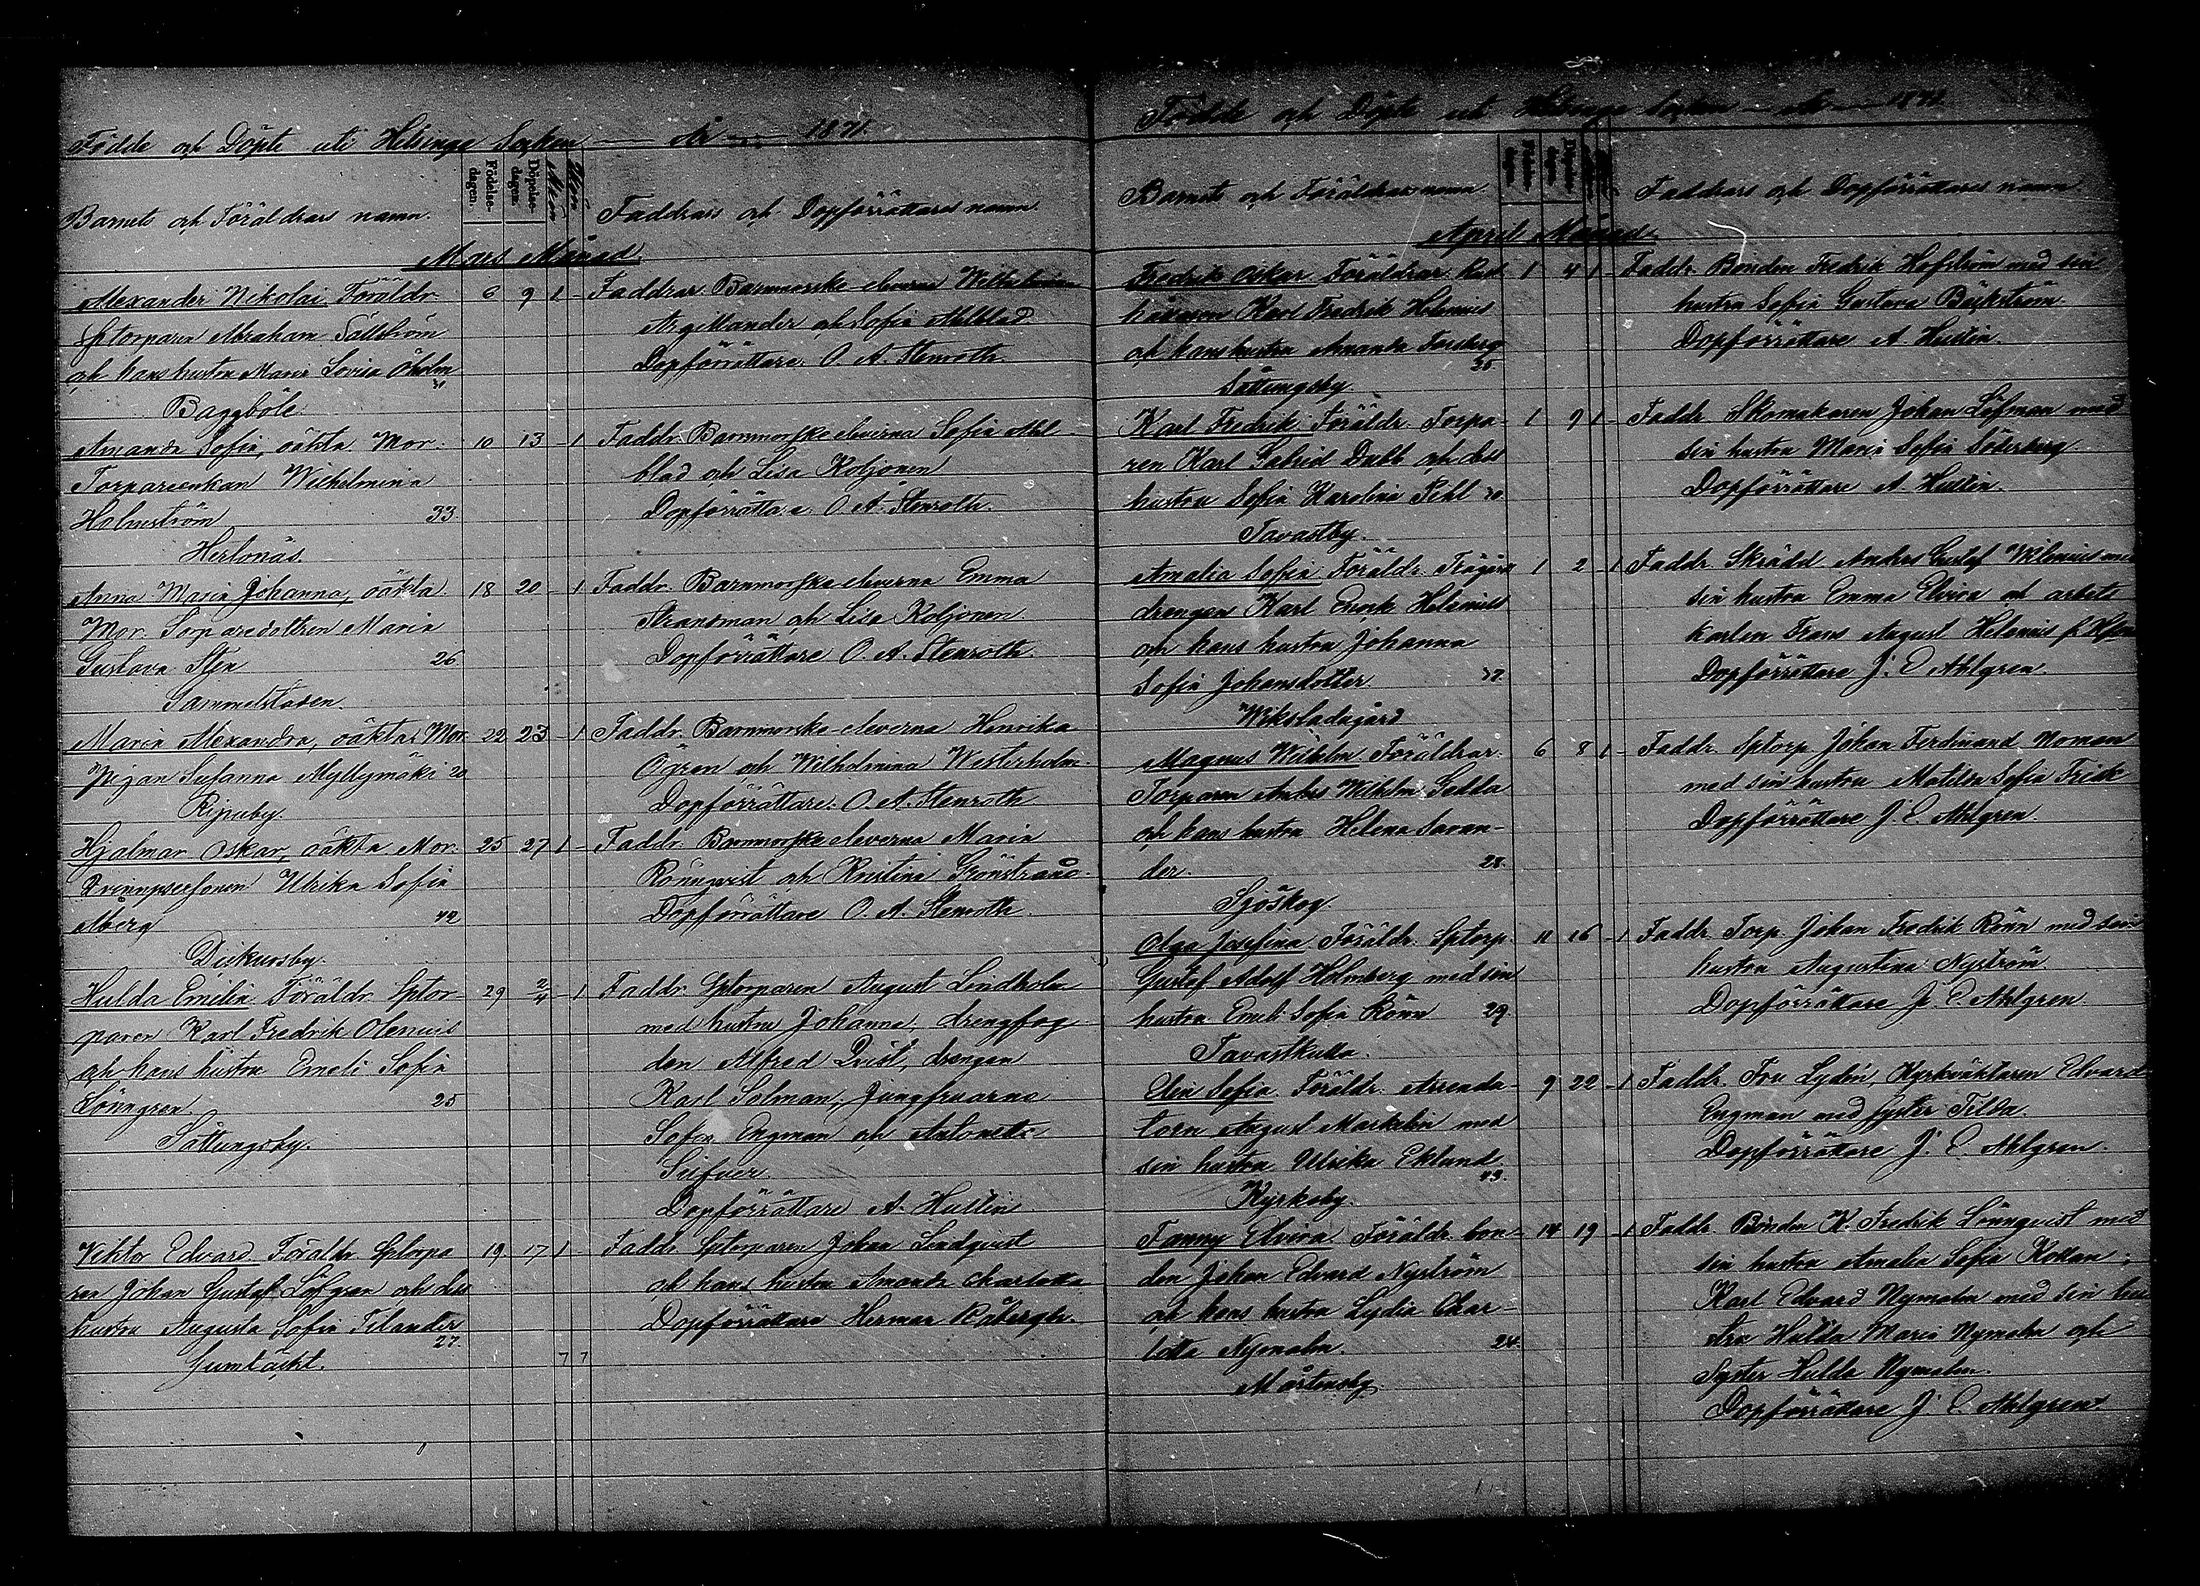 Födde och Döpte uti Helsinge Socken — År — 1871.
Barnets och Föräldrars namn. Födelse-dagen. Döpelse-dagen. Faddrars och Dopförrättares namn
Mars Månad.
Alexander Nikolai, Föräldr. 6 9 1 – Faddrar Barnmorske eleverna Wilhelmina
Sptorparen Abraham Sällström Argillander och Sofia Ahlblad
och hans hustru Maria Lovisa Öholm Dopförrättare O. A. Stenroth.
31
Baggböle
Amanda Sofia, oäkta Mor. 10 13 – 1 Faddr. Barnmorske eleverna Sofia Ahl-
Torpareenkan Wilhelmina blad och Lisa Koljonen
Holmström 33 Dopförrättare O. A. Stenroth.
Hertonäs.
Anna Maria Johanna, oäkta 18 20 – 1 Faddr. Barnmorske eleverna Emma
Mor. Torparedottren Maria Strandman och Lisa Koljonen.
Gustava Sten 26 Dopförrättare O. A. Stenroth.
Gammelstaden.
Maria Alexandra, oäkta Mor. 22 23 – 1 Faddr. Barnmorske eleverna Henrika
Pigan Susanna Myllymäki 20 Ögren och Wilhelmina Westerholm.
Ripuby. Dopförrättare. O. A. Stenroth
Hjalmar Oskar, oäkta Mor. 25 27 1 – Faddr. Barnmorske eleverna Maria
Qvinnspersonen Ulrika Sofia Rönnqvist och Kristina Grönstrand.
Åberg 42 Dopförrättare O. A. Stenroth.
Dickursby.
Hulda Emilia Föräldr. Sptor- 29 2/4 – 1 Faddr. Sptorparen August Lindholm
paren Karl Fredrik Olenius med hustru Johanna, drengfog-
och hans hustru Emeli Sofia den Alfred Qvist, drengen
Lönngren. 25 Karl Solman, Jungfruarna
Sottungsby. Sofia Engman och Antonetta
Dopförrättare A. Hullin
Viktor Edvard Föräldr. Sptorpa 19 17 1 – Faddr. Sptorparen Johan Lindqvist
ren Johan Gustaf Löfgren och dess och hans hustru Amanda Charlotta
hustru Augusta Sofia Tilander Dopförrättare Herman Råbergh.
27.
Gumtäkt. 7 7
Födde och Döpte uti Helsinge Socken — År — 1871
Barnets och Föräldrars namn. Faddrars och Dopförrättares namn
April Månad.
Fredrik Oskar Föräldrar Rust- 1 4 1 – Faddr. Bonden Fredrik Hofström med sin
hållaren Karl Fredrik Helenius hustru Sofia Gustava Bäckström
och hans hustru Amanda Forsberg Dopförrättare A. Hullin.
30.
Sottungsby.
Karl Fredrik Föräldr. Torpa- 1 9 1 – Faddr. Skomakaren Johan Löfman med
ren Karl Gabriel Dubb och dess sin hustru Maria Sofia Söderberg.
hustru Sofia Karolina Pehl 30. Dopförrättare A. Hullin.
Tavastby.
Amalia Sofia Föräldr. Trägårds 1 2 – 1 Faddr. Skrädd. Anders Gustaf Wilenius med
drengen Karl Enok Helenius sin hustru Emma Elvira och arbets
och hans hustru Johanna karlen Frans August Helenius f. Hfors
Sofia Johansdotter 37. Dopförrättare J. E. Ahlgren.
Wiksladugård
Magnus Wilhelm Föräldrar. 6 8 1 – Faddr. Sptorp. Johan Ferdinand Noman
Torparen Anders Wilhelm Gadda med sin hustru Matilda Sofia Frisk
och hans hustru Helena Savan- Dopförrättare J. E. Ahlgren.
der. 28.
Sjöskog.
Olga Josefina Föräldr. Sptorp. 11 16 – 1 Faddr. Torp. Johan Fredrik Rönn med sin
Gustaf Adolf Holmberg med sin hustru Augustina Nyström.
hustru Emeli Sofia Rönn 29. Dopförrättare J. E. Ahlgren
Tavastkulla.
Elin Sofia Föräldr. Arrenda- 9 22 – 1 Faddr. Fru Lydén, Kyrkväktaren Edvard
torn August Markelin med Engman med syster Tilda.
sin hustru Ulrika Eklund Dopförrättare J. E. Ahlgren.
43.
Kyrkoby.
Fanny Elvira Föräldr. bon- 14 19 – 1 Faddr. Bonden K. Fredrik Lönnqvist med
den Johan Edvard Nyström sin hustru Amalia Sofia
och hans hustru Lydia Char- Karl Edvard Nymalm med sin hu
lotta Nymalm. 24. stru Hulda Maria Nymalm och
Mårtensby. Syster Hulda Nymalm.
Dopförrättare J. E. Ahlgren